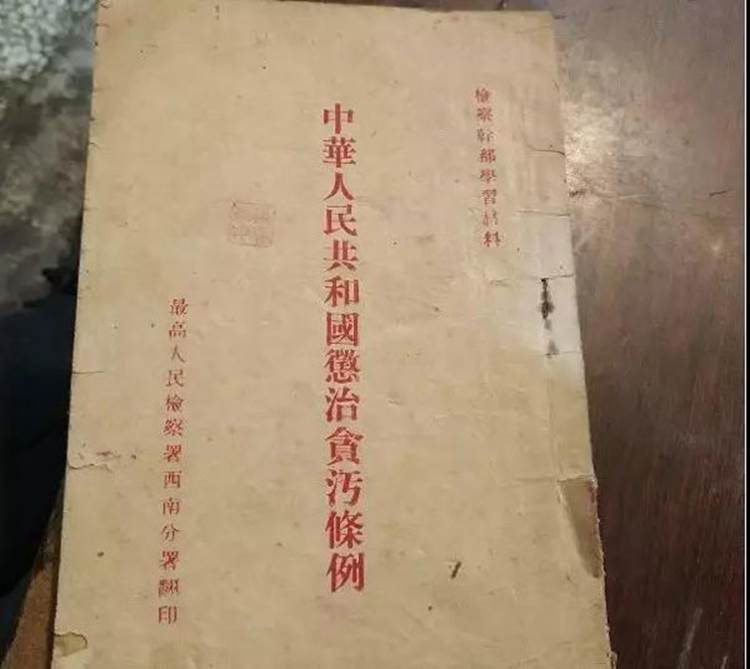 檢察幹部學習材料
中華人民共和國懲治貪污條例
最高人民檢察署西南分署翻印